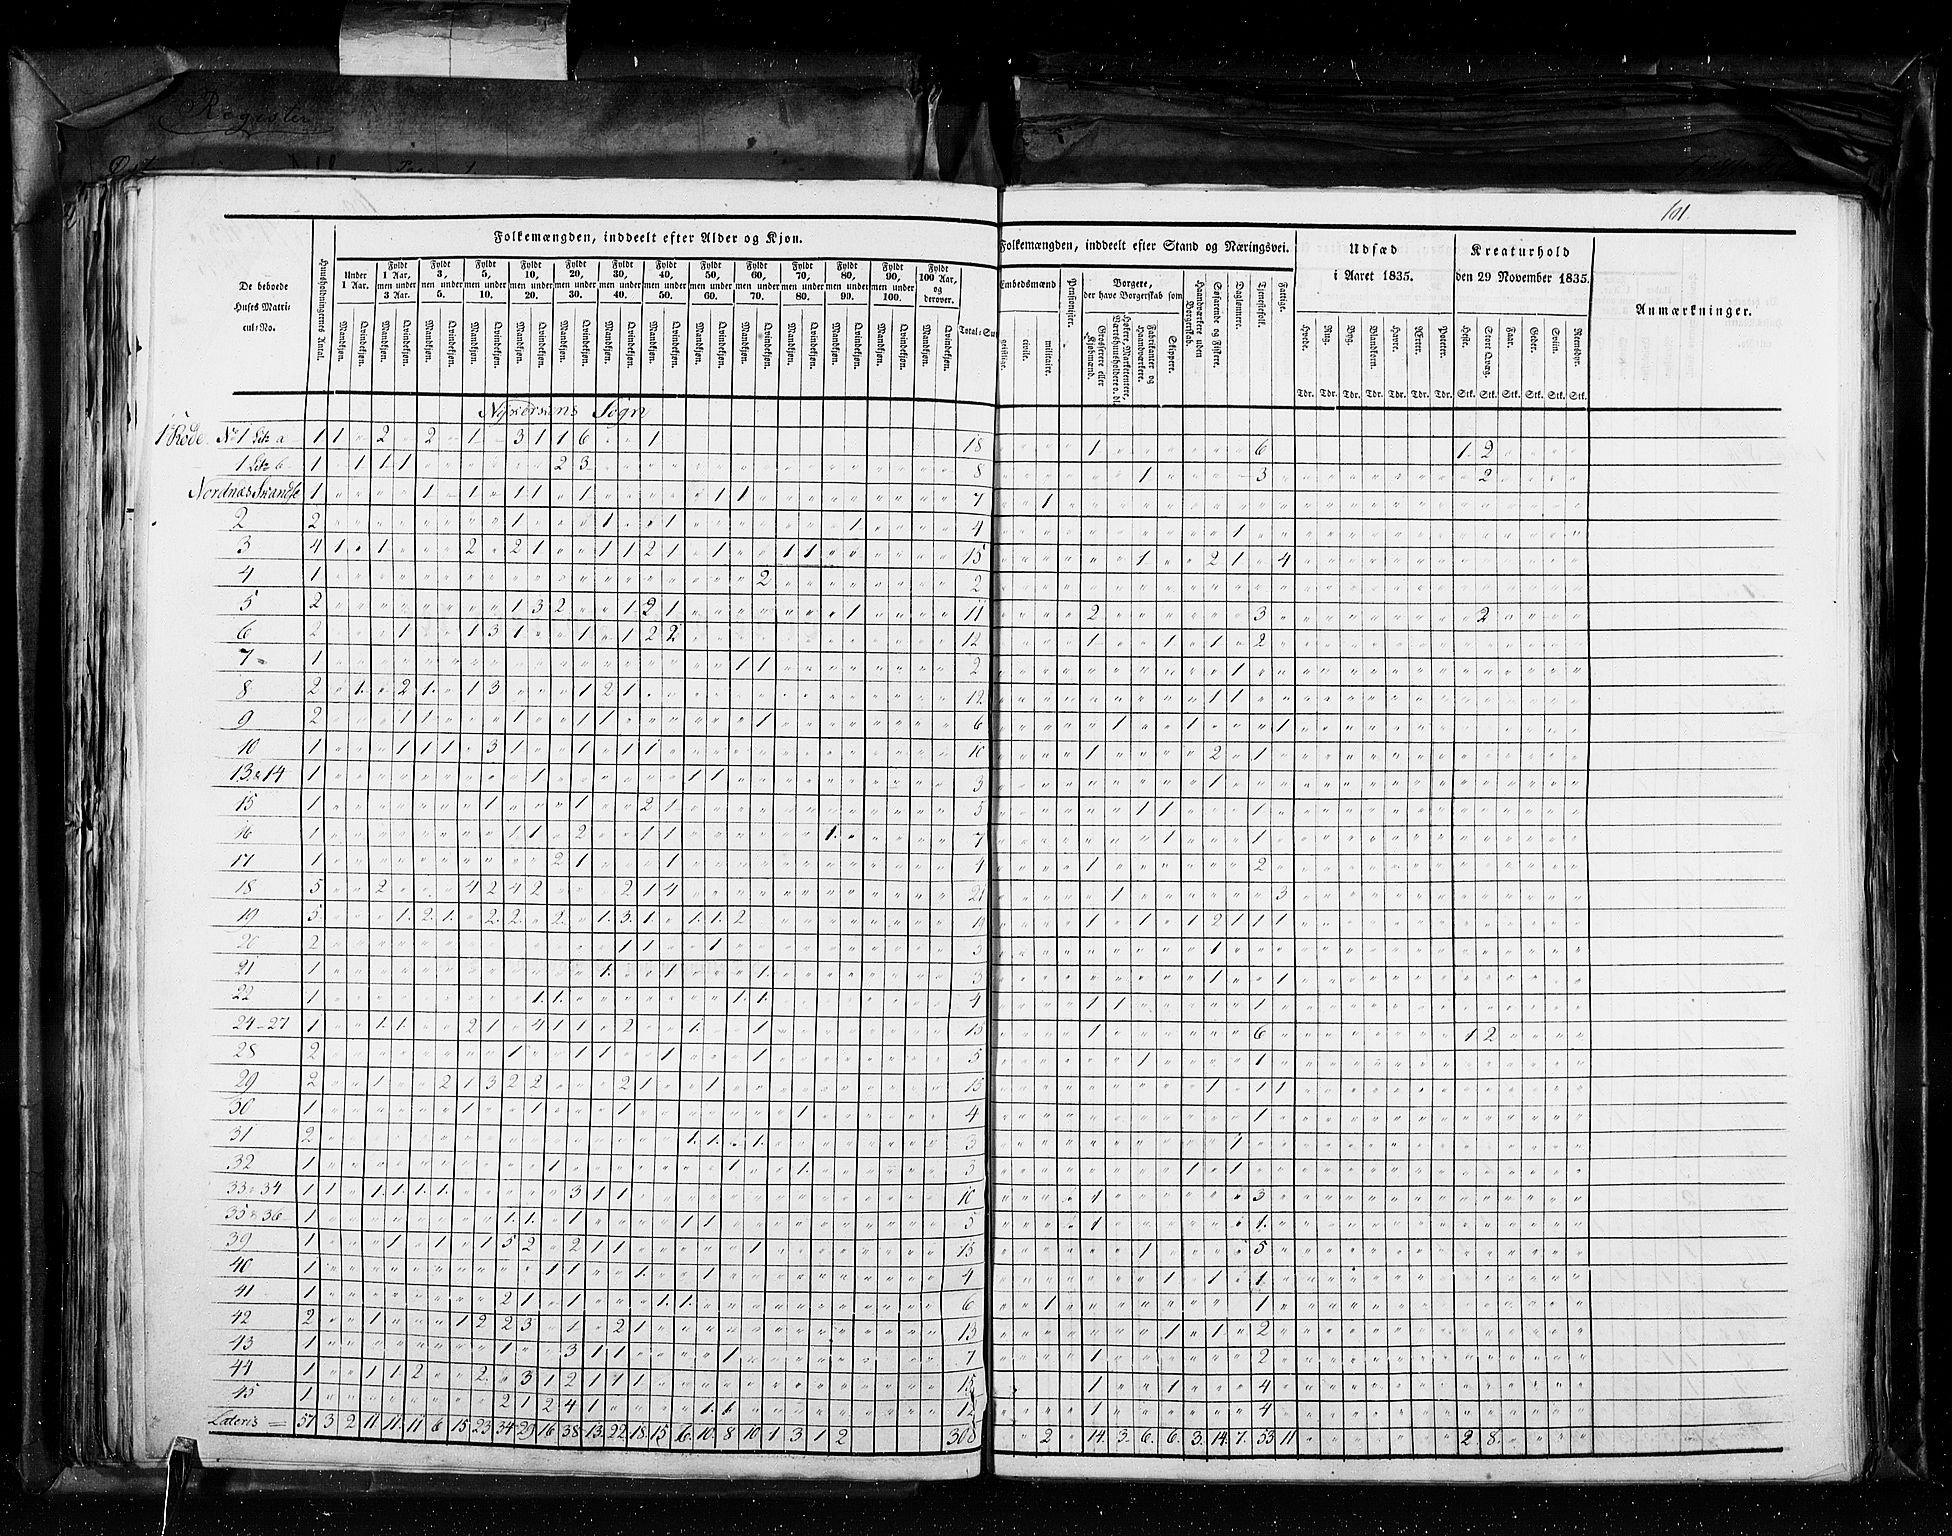 Register
101
Folkemængden, inddeelt efter Alder og Kjøn.
De beboede Huses Matricul-No.
Huusholdningernes Antal.
Under 1 Aar.
Fyldt 1 Aar, men under 3 Aar.
Fyldt 3, men under 5.
Fyldt 5, men under 10.
Fyldt 10, men under 20.
Fyldt 20, men under 30.
Fyldt 30, men under 40.
Fyldt 40, men under 50.
Fyldt 50, men under 60.
Fyldt 60, men under 70.
Fyldt 70, men under 80.
Fyldt 80, men under 90.
Fyldt 90, men under 100.
Fyldt 100 Aar, og derover.
Mandkjøn. Qvindekjøn.
Total-Sum
Folkemængden, inddeelt efter Stand og Næringsvei.
Embedsmænd
geistlige. civile. militaire.
Pensionister.
Borgere, der have Borgerskab som
Grosserere eller Kjøbmænd.
Høkere, Marketentere, Værtshuusholdere o. dl.
Fabrikanter og Haandværkere.
Skippere.
Haandværkere uden Borgerskab.
Søfarende og Fiskere.
Daglønnere.
Tjenestefolk.
Fattige.
Udsæd i Aaret 1835.
Hvede. Rug. Byg. Blandkorn. Havre. Erter. Poteter.
Tdr. Tdr. Tdr. Tdr. Tdr. Tdr. Tdr.
Kreaturhold den 29 November 1835.
Heste. Stort Qvæg. Faar. Geder. Sviin. Reensdyr.
Stk. Stk. Stk. Stk. Stk. Stk.
Anmærkninger.
Nykørkens Sogn
1 Rode No 1 Litr a 1 1 2 2 1 3 1 1 6 1 18 1 6 1 2
1 Litr b 1 1 1 1 2 3 8 1 3 2
Nordnæs Skandse 1 1 1 1 1 1 1 1 7 1
2 2 1 1 1 1 4 1
3 4 1 1 2 2 1 1 1 2 1 1 1 1 15 1 2 1 4
4 1 2 2
5 2 1 3 2 1 2 1 1 11 2 3 2
6 2 1 1 3 1 1 1 2 2 12 1 1 1 2
7 1 1 1 2 1
8 2 1 2 1 1 3 1 2 1 12 1 1
9 2 1 1 1 1 1 1 6 1 1 1
10 1 1 1 1 3 1 1 1 1 10 1 2 1
13 & 14 1 1 1 1 3 1
15 1 1 1 2 1 5 1 1 1
16 1 1 1 2 1 1 1 7 1 1
17 1 2 1 1 4 1 2
18 5 2 4 2 4 2 2 1 4 21 1 3
19 5 1 2 1 2 2 2 1 3 1 1 1 2 19 1 1 1 2 1 1 1
20 2 1 1 1 3 1
21 1 1 1 1 3 1 1
22 1 1 1 1 1 4 1 1 1
24-27 1 1 1 2 1 4 1 1 2 1 1 15 1 6 1 2
28 2 1 1 1 1 1 5 1 1
29 2 1 2 1 3 2 2 2 1 1 15 1 1 1
30 1 1 1 1 1 4 1
31 2 1 1 1 3 1
32 1 1 1 1 3 1 1
33 & 34 1 1 1 1 1 1 3 1 1 10 1 3
35 & 36 1 1 1 1 1 1 5 1 1
39 1 1 1 1 5 2 2 1 1 1 15 1 5
40 1 1 1 1 1 4 1 1 1
41 1 2 1 1 1 1 6 1 1
42 2 1 1 2 2 3 1 2 1 13 1 1 2
43 1 1 3 1 1 1 7 1 2
44 1 1 1 2 2 3 1 2 1 1 1 15 1 1 4
45 1 2 1 2 4 1 1 1 12 1 4
Lateris 57 3 2 11 11 11 6 15 23 34 29 16 38 13 22 18 15 6 10 8 10 1 3 1 2 308 2 14 3 6 6 3 14 7 53 11 2 8